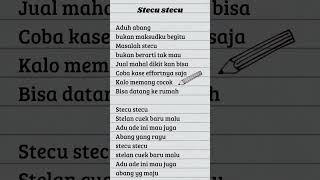 Stecu stecu
Aduh abang
bukan maksudku begitu
Masalah stecu
bukan berarti tak mau
Jual mahal dikit kan bisa
Coba kase effortnya saja
Kalo memang cocok
Bisa datang ke rumah
Stecu stecu
Stelan cuek baru malu
Adu ade ini mau juga
Abang yang rayu
stecu stecu
stelan cuek baru malu
Adu ade ini mau juga
abang yg maju